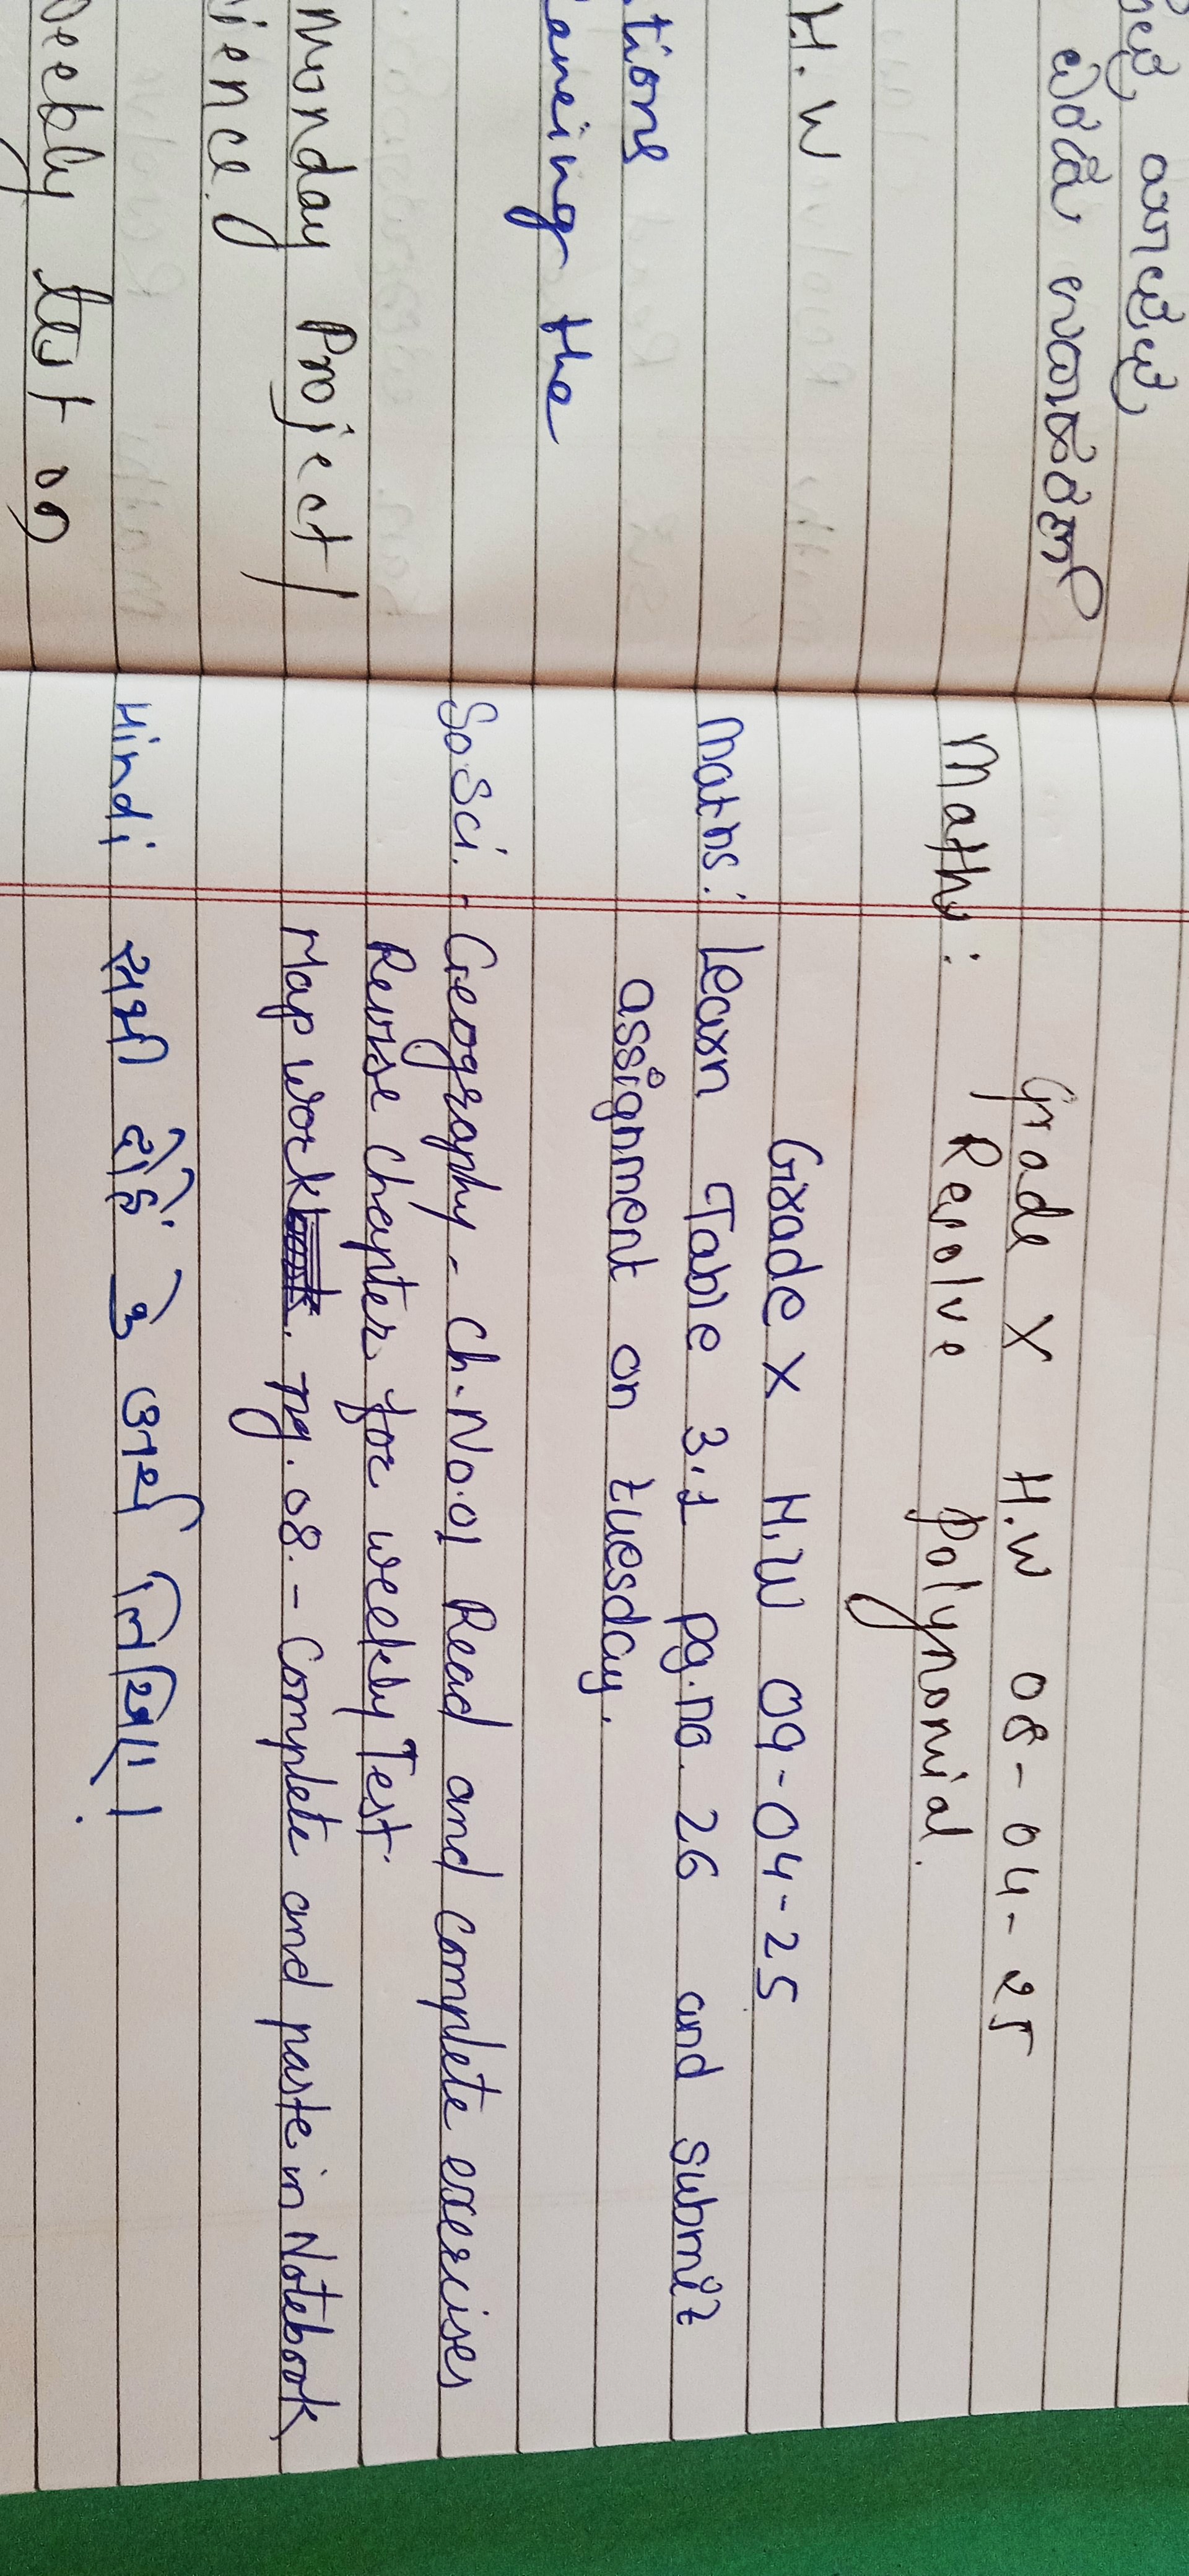 H.W
tions
the
monday Project/
test on
Grade X H.W 08-04-25
Maths: Resolve Polynomial.
Grade X H.W 09-04-25
Maths: Learn Table 3.1 pg.no. 26 and submit
assignment on tuesday.
So Sci. - Geography - Ch.No.01 Read and complete exercises
Revise chapter for weekly Test.
Map work. Pg. 08. - Complete and paste in Notebook
Hindi सभी दोहों के अर्थ लिखिए।